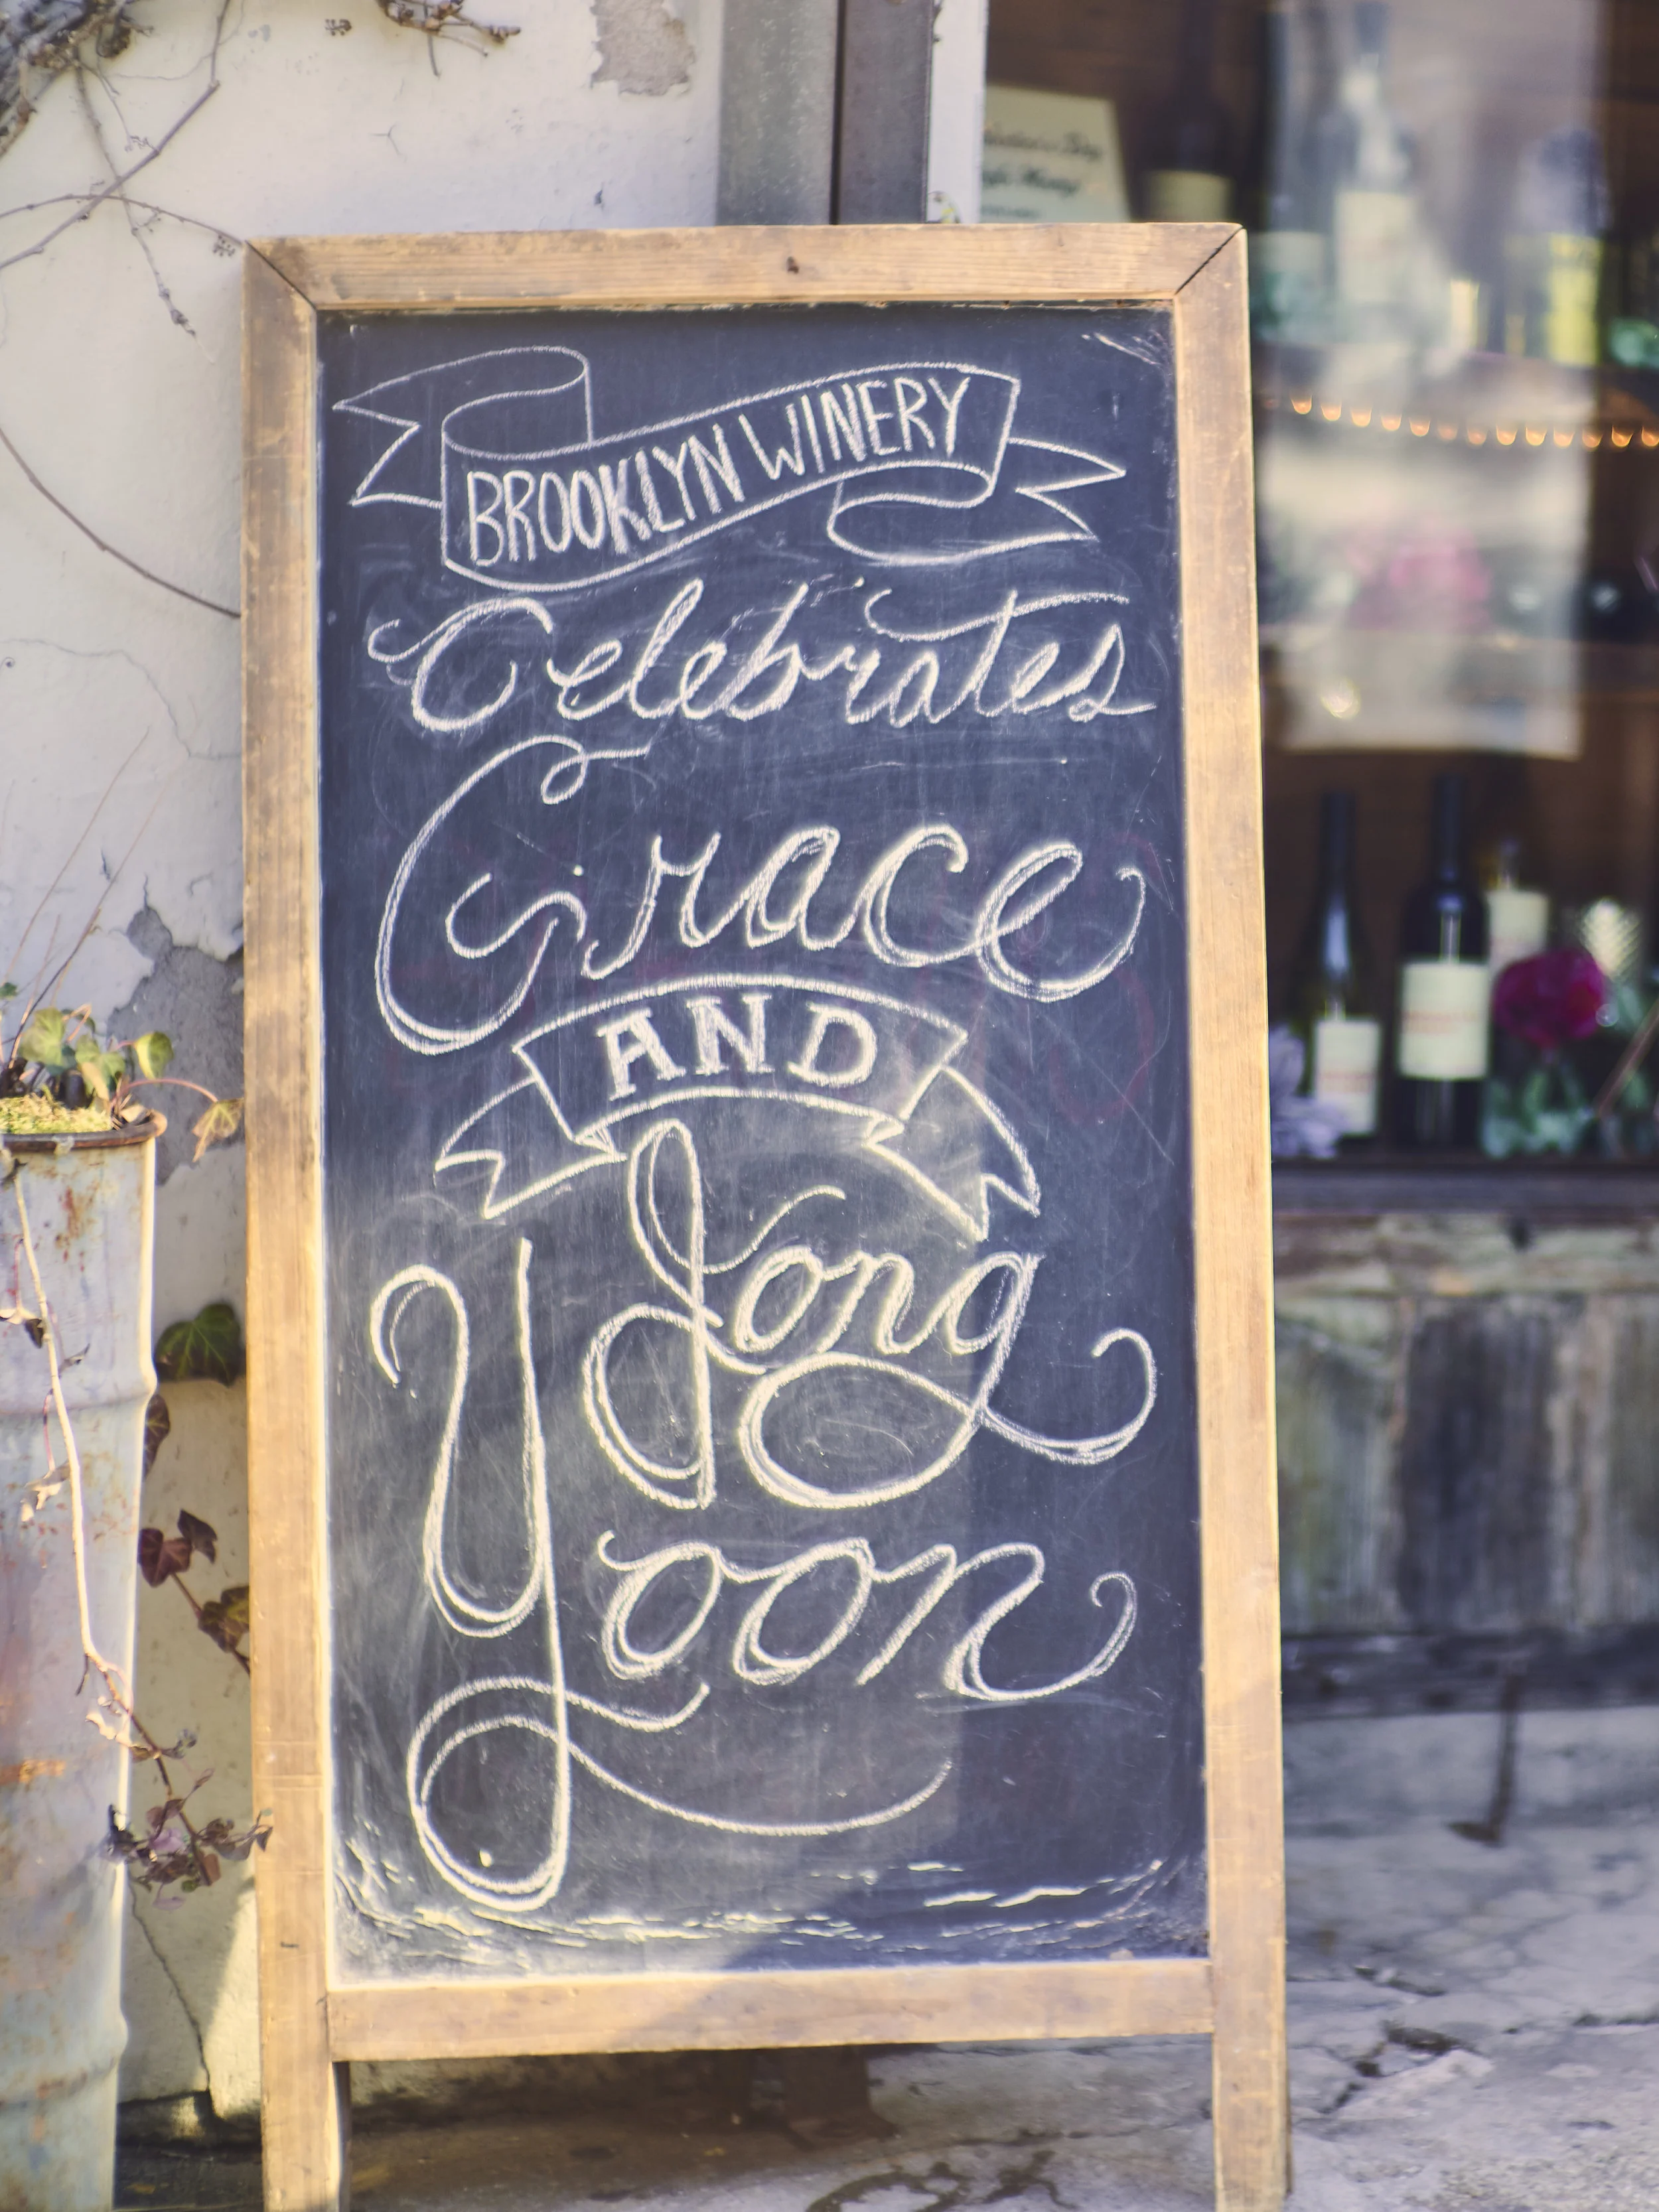 BROOKLYN WINERY
Celebrates
Grace
AND
Jong
Yoon